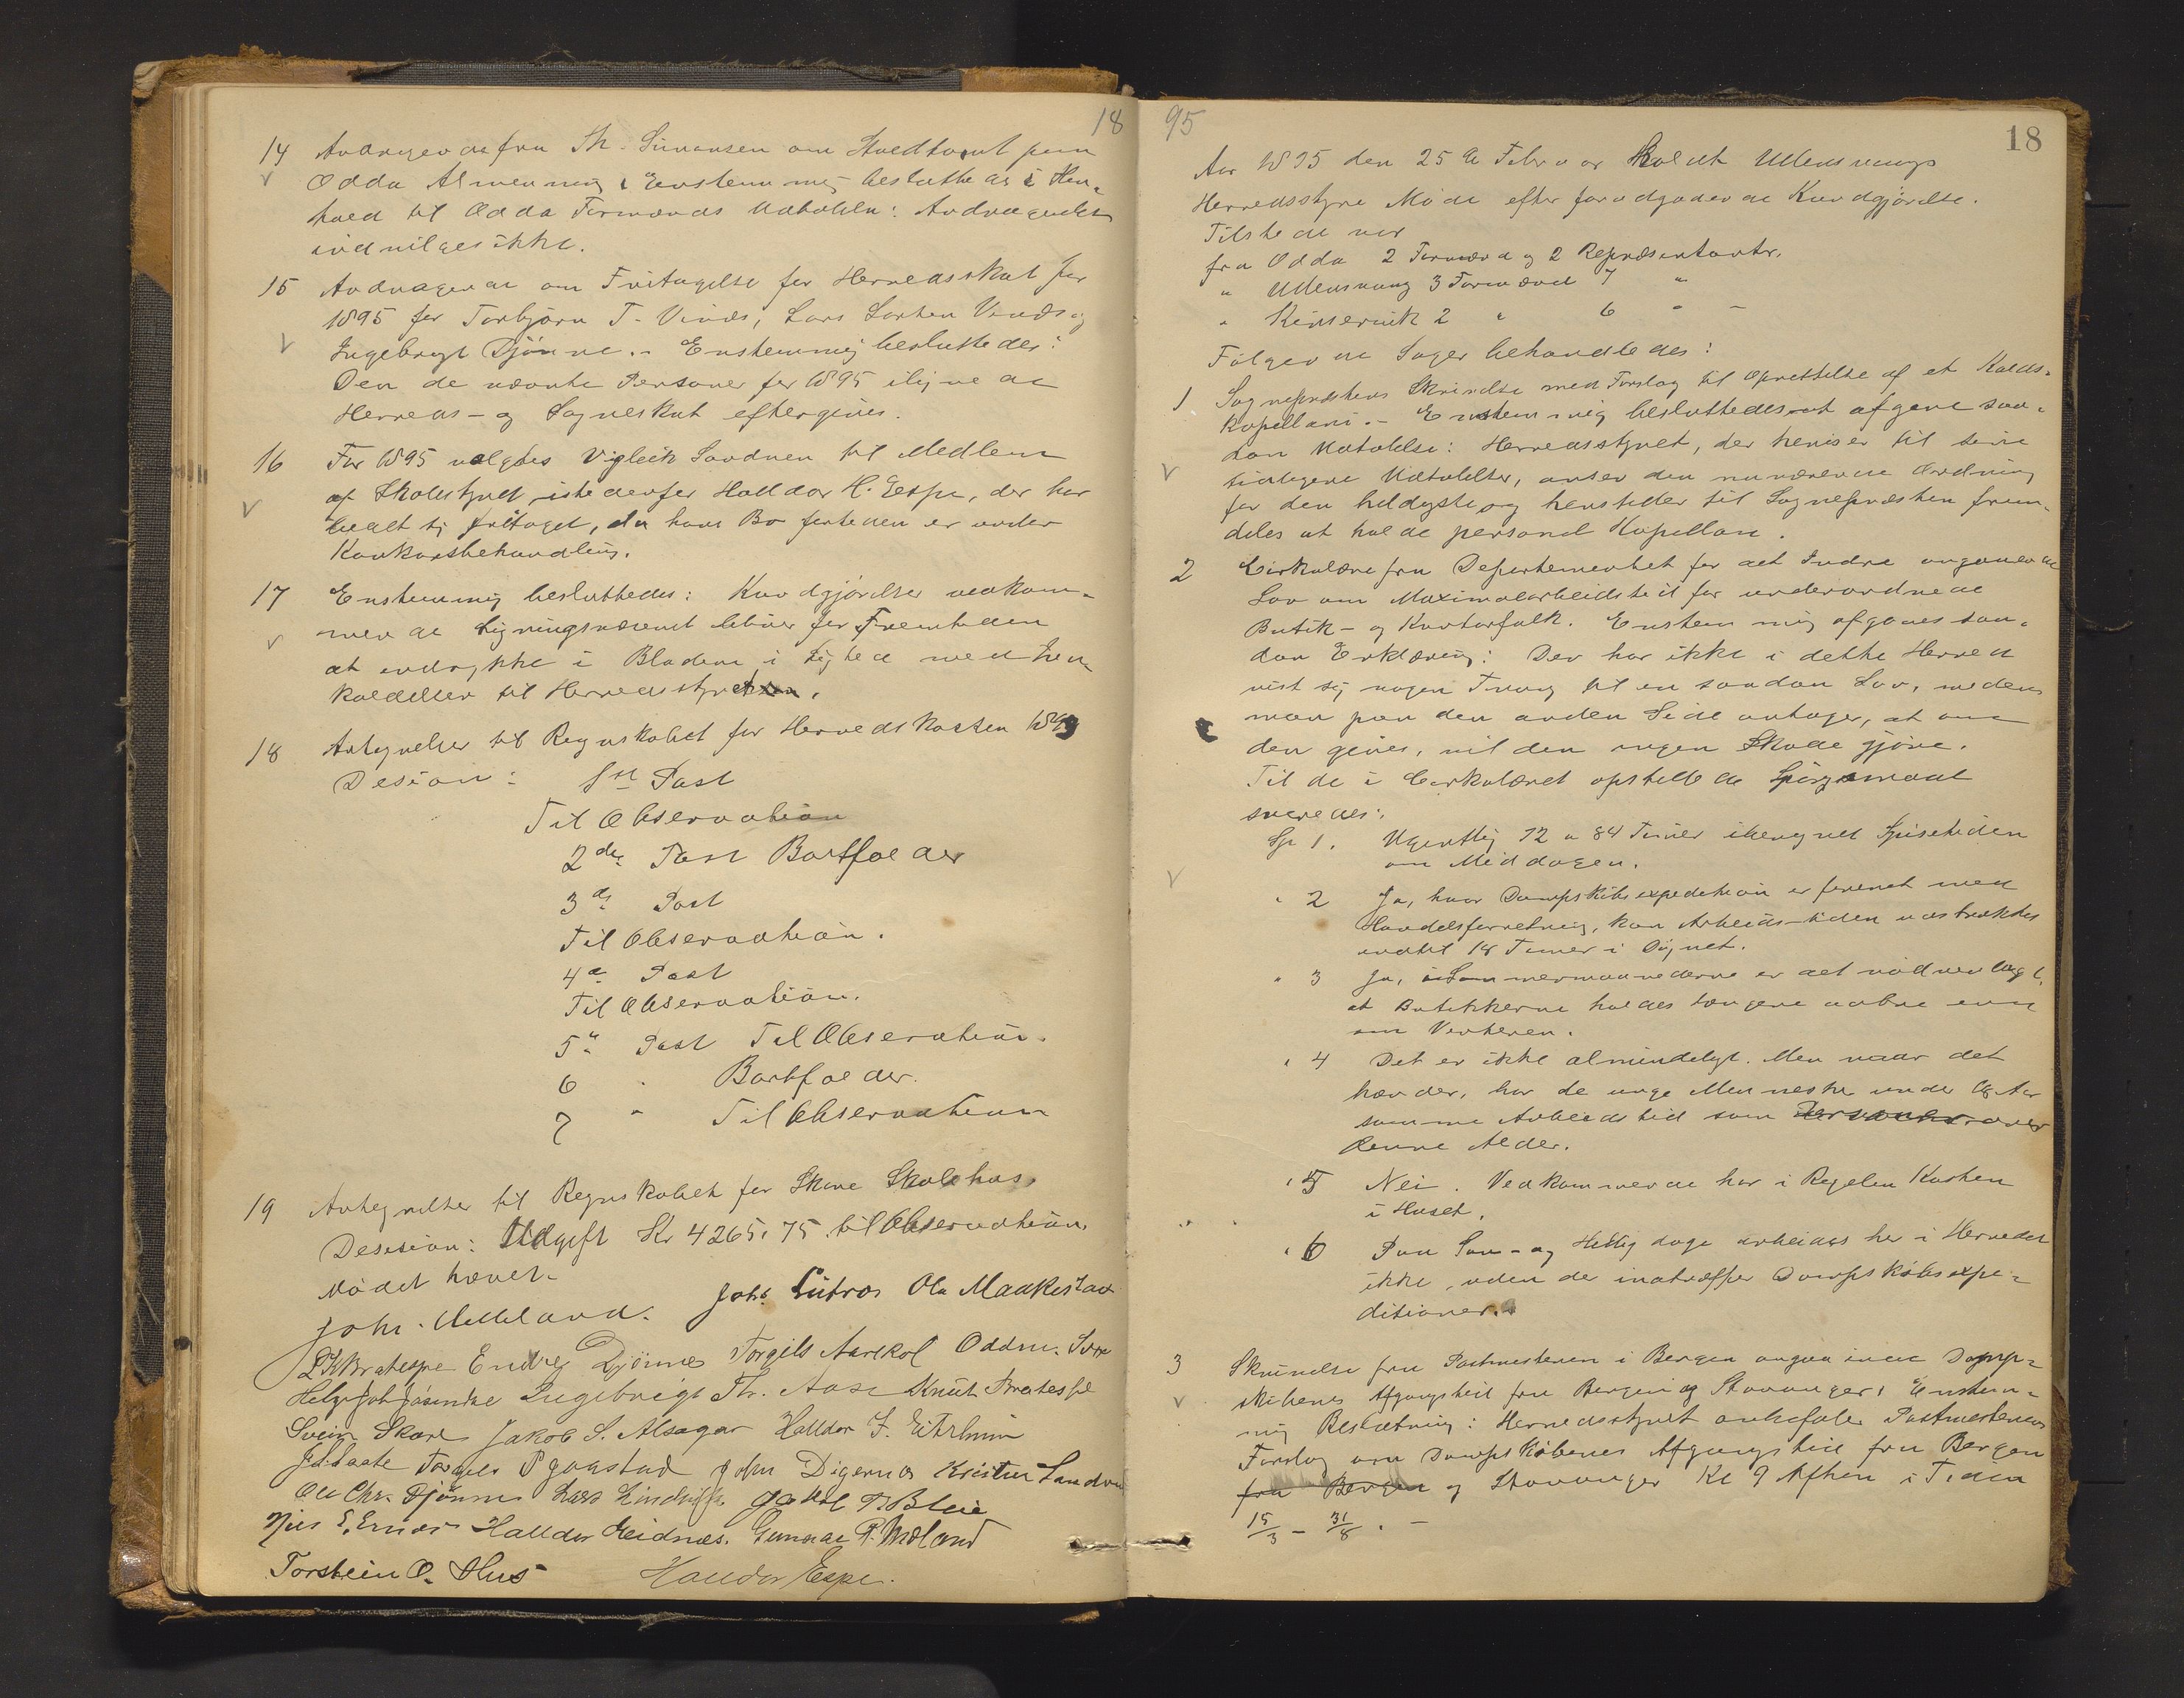 18
14 Andragende fra Th. Simonsen om Hustomt paa
Odda Almenning. Enstemmig besluttedes i Hen-
hold til Odda Formænds Udtalelse: Andragendet
indvilges ikke.
15 Andragende om Fritagelse for Herredsskat for
1895 for Torbjörn T. Vinæs, Lars Larsen Vinæs og
Ingebrigt Djönne. - Enstemmig besluttedes:
Den de nævnte Personer for 1895 ilignede
Herreds- og Sogneskat eftergives.
16 For 1895 valgtes Vigleik Sandven til Medlem
af Skolestyret istedenfor Halldor H. Espe, der har
bedt sig fritaget, da hans Bo fortiden er under
Konkursbehandling.
17 Enstemmig besluttedes: Kundgjörelser vedkom-
mende Ligningsvæsenet bliver for Fremtiden
at indrykke i Bladene i Lighed med Ind-
kaldelser til Herredsstyret.
18 Antegnelser til Regnskabet for Herredskassen 1893
Desion: 1ste Post
Til Observation
2den Post Bortfalder
3de Post
Til Observation.
4de Post
Til Observation.
5te Post Til Observation.
6 " Bortfalder.
7 " Til Observation
19 Antegnelser til Regnskabet for Skare Skolehus.
Desision: Udgift Kr 4265,75 til Observation.
Mödet hævet.
Johs. Lutro Ola Maakestad
John. Aelland.
Bratespe Endre Djönne Torgils Aarekol Oddm.
Helge Joh Jösendal Ingebrigt Th. Aase Knut Bratespe
Svein Skare Jakob S. Alsager Halldor J. Eitrheim
Torgils P Gaastad John Digernes Kristen Sandven
Ole Chr. Djönne Lars Lindvik Jakob P. Bleie
Nils E. Ernes Halldor Heidnes. Gunnar P. Mæland
Torstein O. Hus Halldor Espe.
95
18
Aar 1895 den 25de Februar holdt Ullensvangs
Herredsstyre Möde efter forudgaaende Kundgjörelse.
Tilstede var
fra Odda 2 Formænd og 2 Repræsentanter.
" Ullensvang 3 Formænd 7 "
" Kinservik 2 " 6 " -
Fölgende Sager behandledes:
1 Sognepræstens Skrivelse med Forslag til Oprettelse af et Kalds-
kapellani. - Enstemmig besluttedes at afgive saa-
dan Udtalelse: Herredsstyret, der henviser til sine
tidligere Udtalelser, anser den nuværende Ordning
for den heldigste og henstiller til Sognepræsten frem-
deles at holde personel Kapellan.
2 Cirkulære fra Departementet for det Indre angaaende
Lov om Maximalarbeidstid for underordnede
Butik- og Kontorfolk. Enstemmig afgaves saa-
dan Erklæring: Der har ikke i dette Herred
vist sig nogen Trang til en saadan Lov, medens
man paa den anden Side antager, at om
den gives, vil den ingen Skade gjöre.
Til de i Cirkulæret opstillede Spörgsmaal
svaredes:
Sp 1. Ugentlig 72 a 84 Timer iberegnet Spisetiden
om Middagen.
" 2 Ja, hvor Dampskibsexpedition er forenet med
Handelsforretning, kan Arbeidstiden udstrækkes
indtil 18 Timer i Dögnet.
" 3 Ja, i Sommermaanederne er det nödvendigt,
at Butikkerne holdes længere aabne end
om Vinteren.
" 4 Det er ikke almindeligt. Men naar det
hænder, har de unge Mennesker under 18 Aar
samme Arbeidstid som Personer over
denne Alder.
" 5 Nei. Vedkommende har i Regelen Kosten
i Huset.
" 6 Paa Søn- og Helligdage arbeides her i Herredet
ikke, uden der indtræffer Dampskibsexpe-
ditioner.
3 Skrivelse fra Postmesteren i Bergen angaaende Damp-
skibenes Afgangstid fra Bergen og Stavanger. Enstem-
mig Beslutning: Herredsstyret anbefaler Postmesterens
Forslag om Dampskibenes Afgangstid fra Bergen
fra Bergen og Stavanger Kl 9 Aften i Tiden
15/3 - 31/8. -